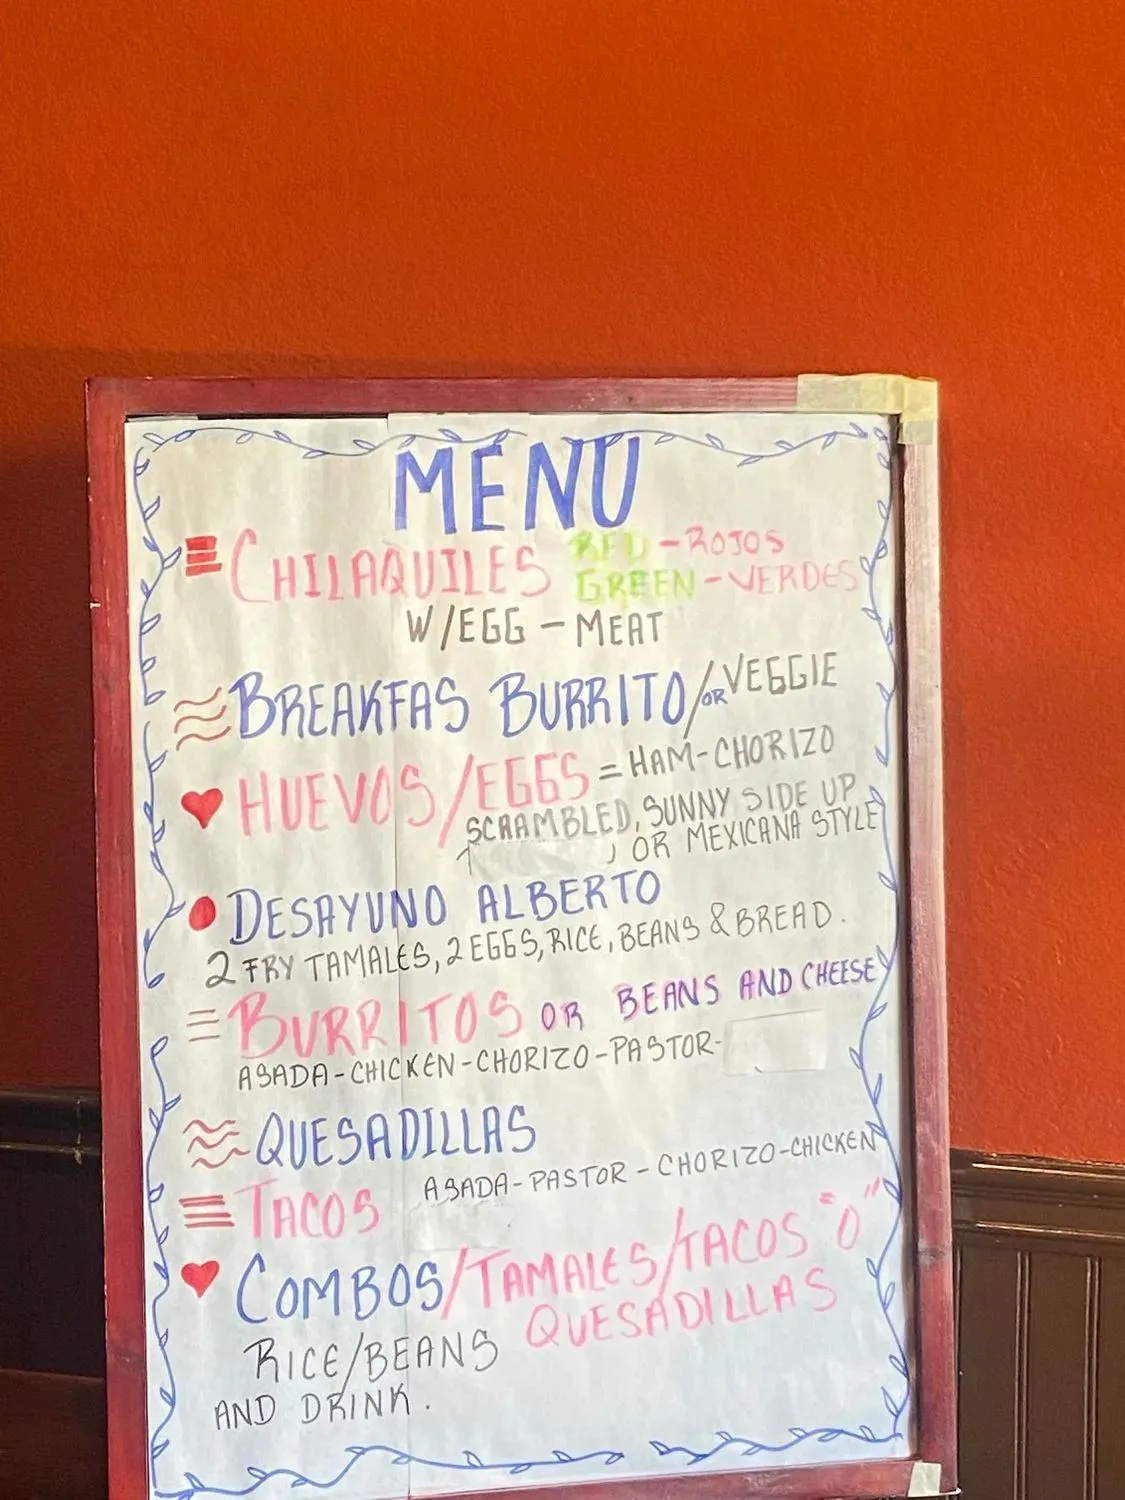 MENU
CHILAQUILES RED - ROJOS
GREEN - VERDES
W/EGG - MEAT
BREAKFAS BURRITO/OR VEGGIE
HUEVOS/EGGS = HAM-CHORIZO
SCRAMBLED, SUNNY SIDE UP
, OR MEXICANA STYLE
DESAYUNO ALBERTO
2 FRY TAMALES, 2 EGGS, RICE, BEANS & BREAD.
BURRITOS OR BEANS AND CHEESE
ASADA-CHICKEN-CHORIZO-PASTOR-
QUESADILLAS
ASADA-PASTOR-CHORIZO-CHICKEN
TACOS
COMBOS/TAMALES/TACOS "O"
QUESADILLAS
RICE/BEANS
AND DRINK.